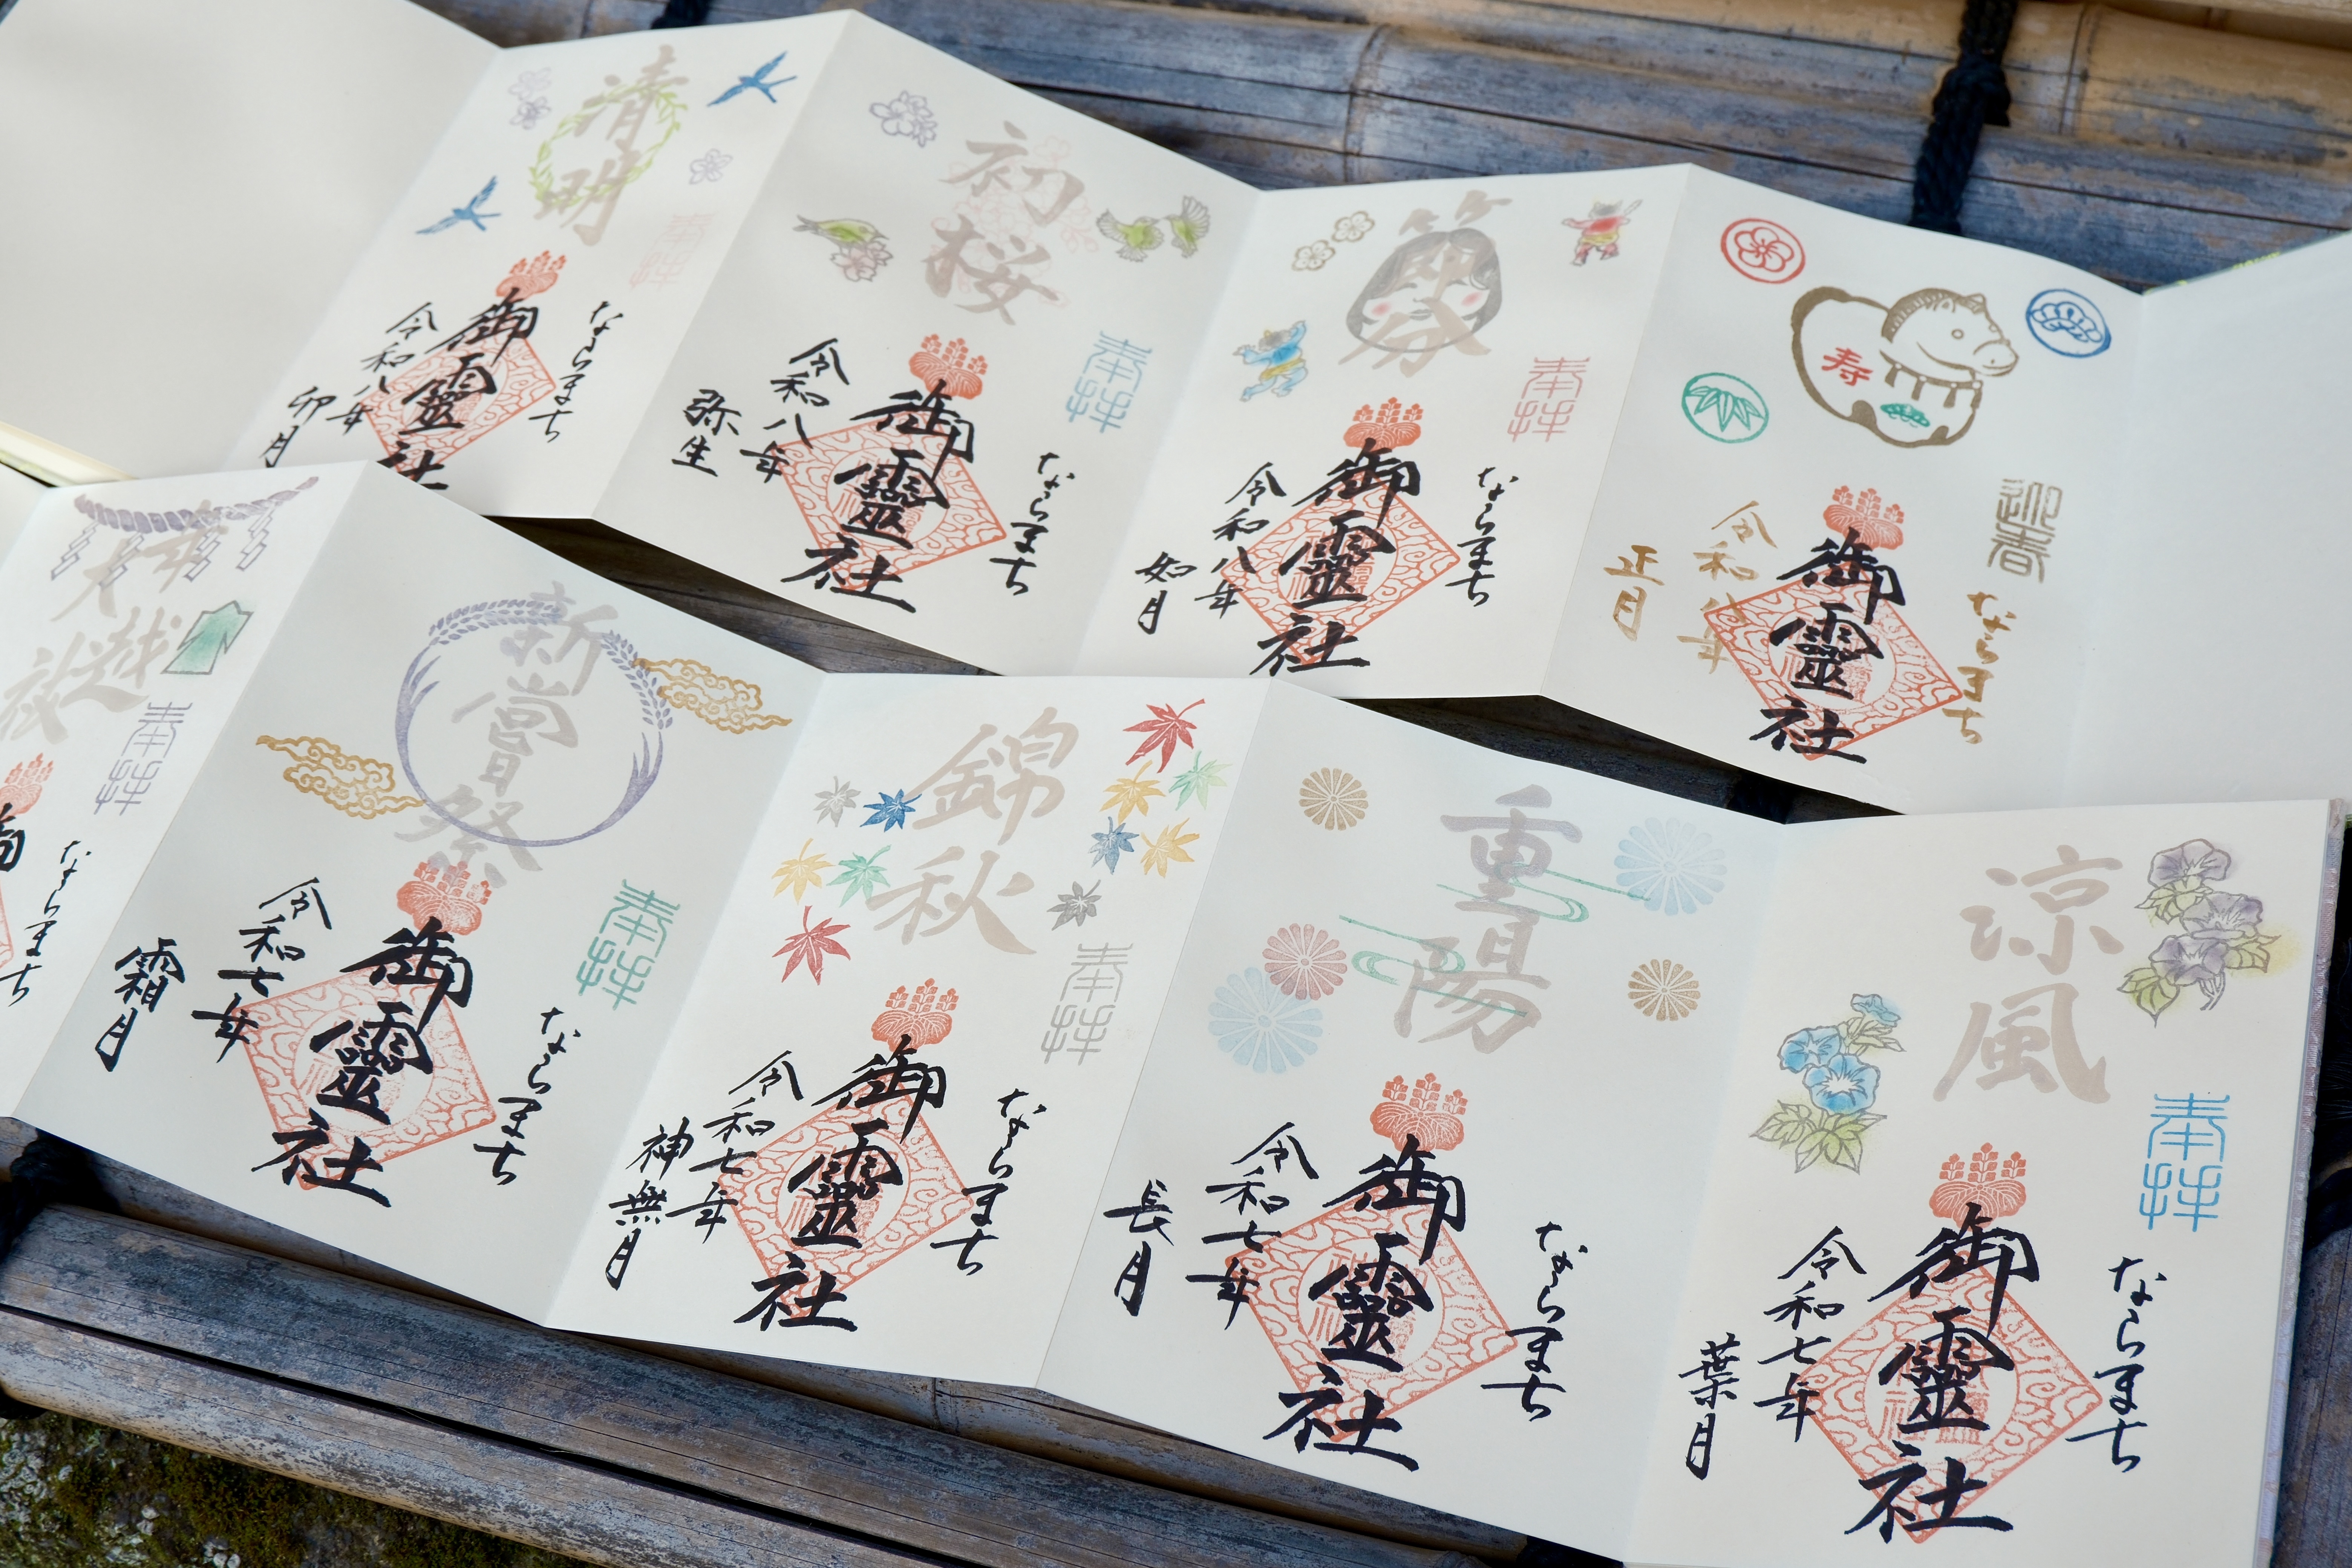 清明
奉拝
ならまち
御靈社
令和八年
卯月
初桜
奉拝
ならまち
御靈社
令和八年
弥生
節分
奉拝
ならまち
御靈社
令和八年
如月
寿
迎春
ならまち
御靈社
令和八年
正月
大祓
奉拝
ならまち
新嘗祭
奉拝
ならまち
御靈社
令和七年
霜月
錦秋
奉拝
ならまち
御靈社
令和七年
神無月
重陽
奉拝
ならまち
御靈社
令和七年
長月
涼風
奉拝
ならまち
御靈社
令和七年
葉月